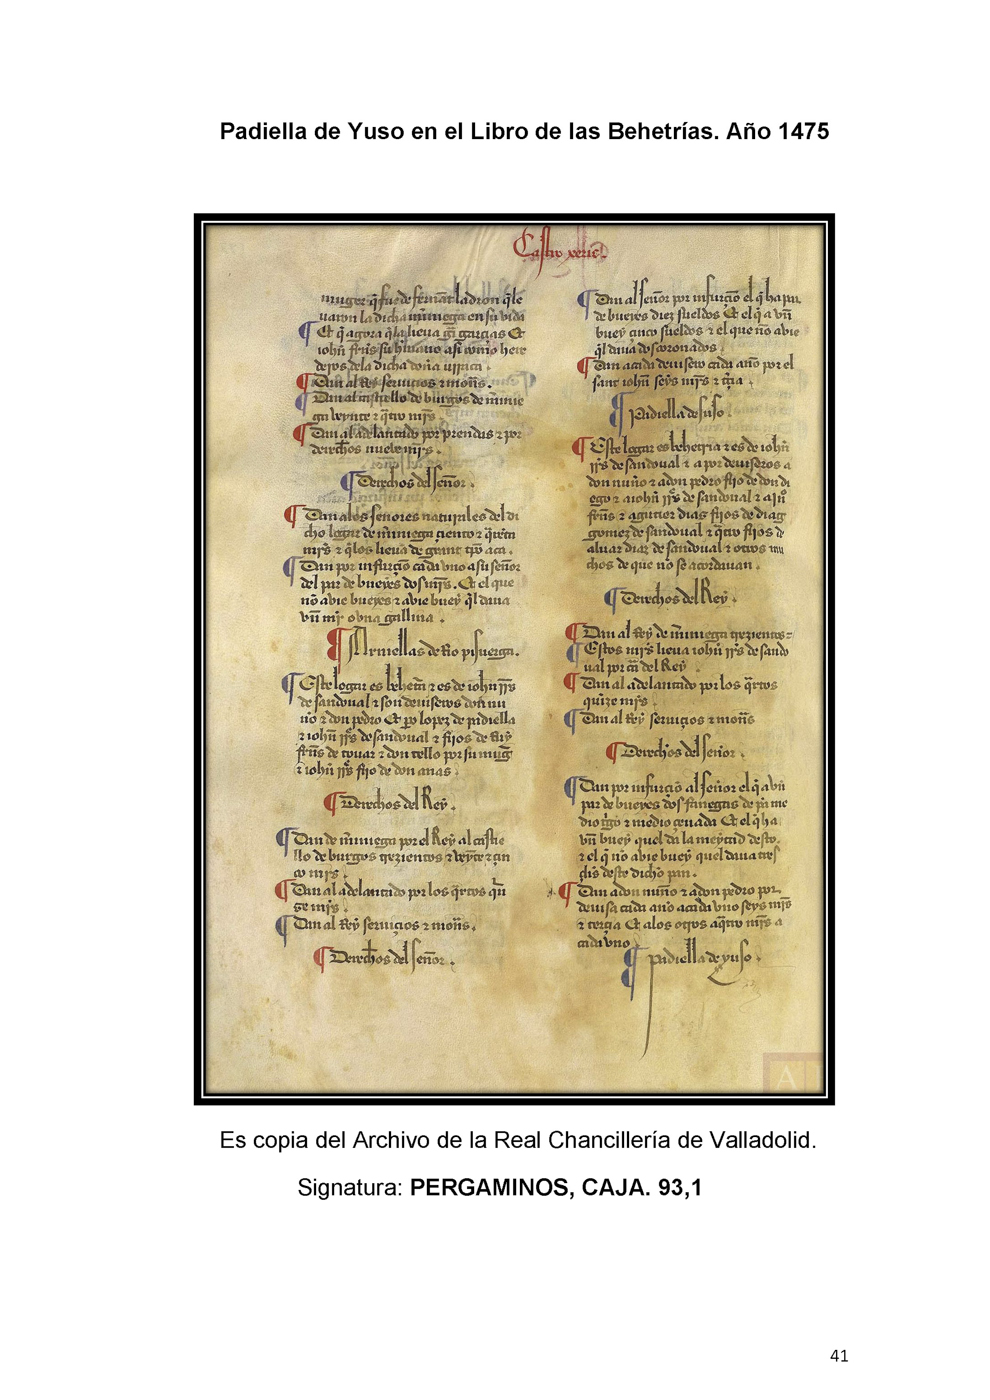 Padiella de Yuso en el Libro de las Behetrías. Año 1475
Castro xeriç.
muger q̃ fue de ferrant ladron q̃ le
uaron la dicha mĩniega en su vida
Et q̃ agora q̃ la lieua garçias Et
iohñ frñs su hermano asi com̃o here
deros de la dicha doña vrraca.
Dan al Rey seruiçios e moñs.
Dan al castiello de burgos de mĩnie
ga veynte e q̃tro mr̃s.
Dan al adelantado por prendas e por
derechos nueue mr̃s.
Derechos del Señor.
Dan alos señores naturales del di
cho logar de mĩniega çiento e q̃renta
mr̃s e q̃ los lieua de grant tp̃o aca.
Dan por infurçiõ cada vno a su señor
del par de bueyes dos mr̃s. Et el que
nõ avie bueyes e avie buey q̃l daua
vñ mr̃ o vna gallina.
Armellas de Rio pisuerga.
Este logar es behet̃a e es de iohñ rr̃s
de sandoual e son deuiseros don nu
ño e don pedro Et po lopez de padiella
e iohñ rr̃s de sandoual e fijos de Ruy
frñs de touar e don tello por su mug̃
e iohñ rr̃s fijo de don
Derechos del Rey.
Dan de mĩniega por el Rey al castie
llo de burgos trezientos e veynte e çin
co mr̃s.
Dan al adelantado por los q̃rtos qui
ze mr̃s.
Dan al Rey seruiçios e moñs.
Derechos del señor.
Dan al señor por infurçiõ el q̃ ha par
de bueyes diez sueldos Et el q̃ a vñ
buey çinco sueldos e el que nõ avie
q̃l daua dos coronados.
Dan a cada deuisero cada año por el
sant iohñ seys mr̃s e t̃çia.
Padiella de suso.
Este logar es behetria e es de iohñ
rr̃s de sandoual e a por deuiseros a
don nuño e a don pedro fijo de don di
ego e a iohñ rr̃s de sandoual e a
frñs e a gutier dias fijos de diag
gomez de sandoual e q̃tro fijos de
aluar diaz de sandoual e otros mu
chos de que nõ se acordauan.
Derechos del Rey.
Dan al Rey de mĩniega trezientos
Estos mr̃s lieua iohñ rr̃s de sando
ual por del Rey
Dan al adelantado por los q̃rtos
quinze mr̃s.
Dan al Rey seruiçios e moñs
Derechos del señor.
Dan por infurçiõ al señor el q̃ a vñ
par de bueyes dos fanegas de pã me
dio t̃go e medio çeuada Et el q̃ ha
vñ buey quel da la meytad desto.
e el q̃ nõ avie buey quel daua tres
çis deste dicho pan.
Dan a don nuño e a don pedro por
deuisa cada año a cada vno seys mr̃s
e terçia Et alos otros a q̃tro mr̃s a
cada vno
Padiella de yuso.
A
Es copia del Archivo de la Real Chancillería de Valladolid.
Signatura: PERGAMINOS, CAJA. 93,1
41